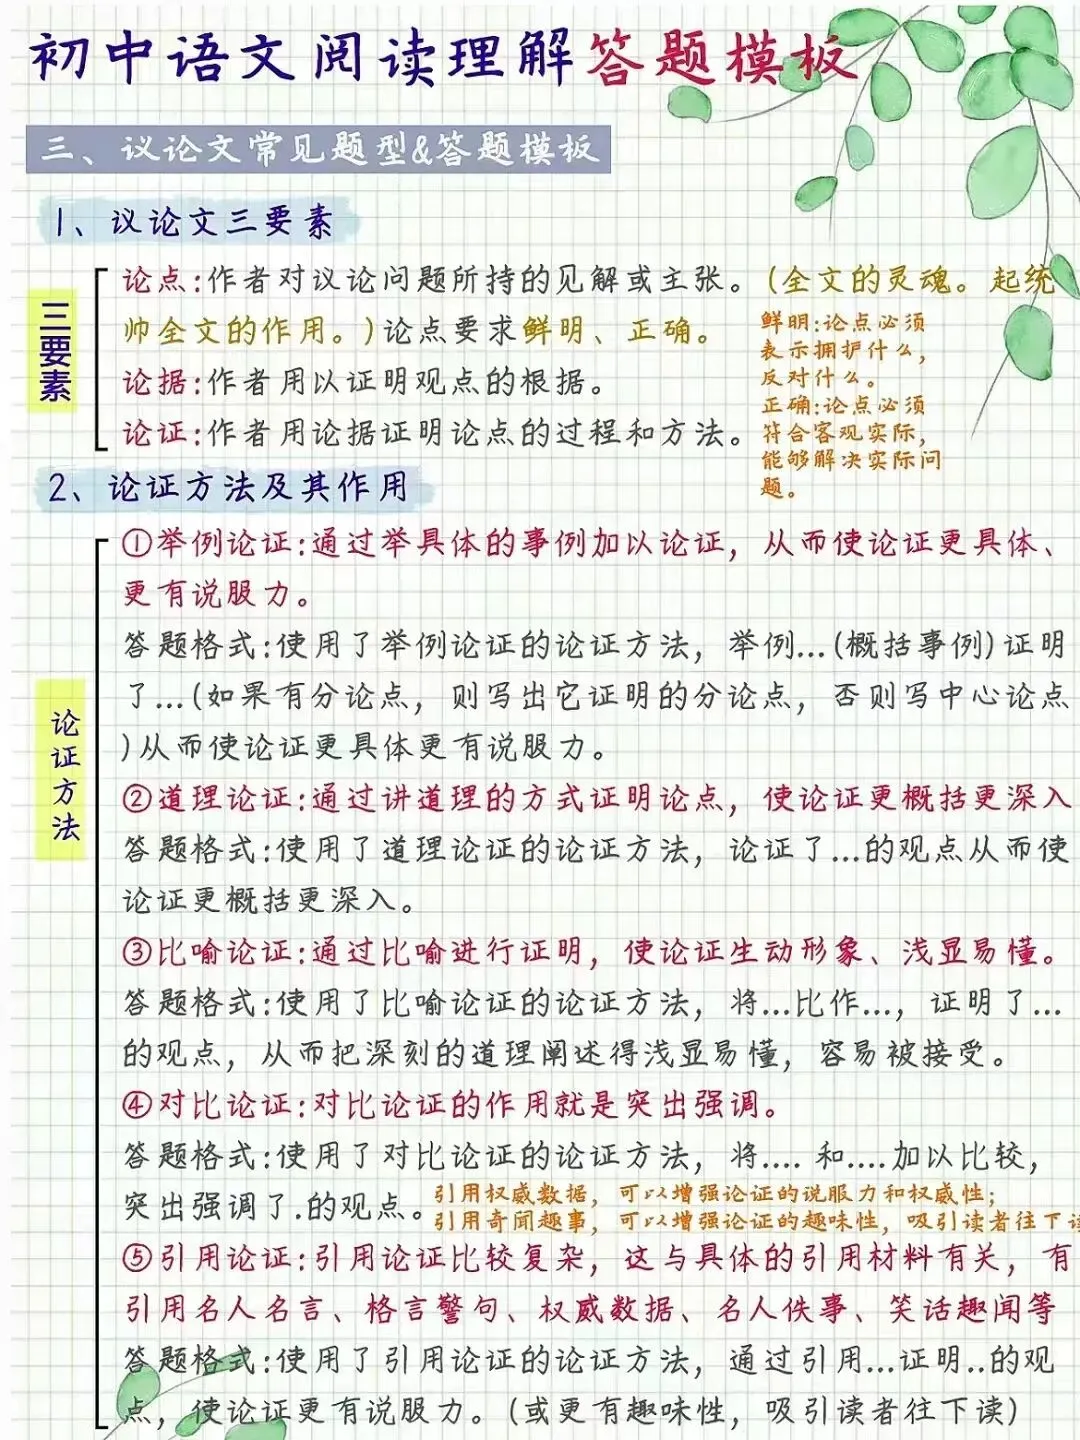 初中语文阅读理解答题模板
三、议论文常见题型&答题模板
1、议论文三要素
三要素
论点:作者对议论问题所持的见解或主张。(全文的灵魂。起统
帅全文的作用。)论点要求鲜明、正确。
鲜明:论点必须
表示拥护什么,
反对什么。
正确:论点必须
符合客观实际,
能够解决实际问
题。
论据:作者用以证明观点的根据。
论证:作者用论据证明论点的过程和方法。
2、论证方法及其作用
论证方法
①举例论证:通过举具体的事例加以论证，从而使论证更具体、
更有说服力。
答题格式:使用了举例论证的论证方法，举例...(概括事例)证明
了...(如果有分论点，则写出它证明的分论点，否则写中心论点
)从而使论证更具体更有说服力。
②道理论证:通过讲道理的方式证明论点，使论证更概括更深入
答题格式:使用了道理论证的论证方法，论证了...的观点从而使
论证更概括更深入。
③比喻论证:通过比喻进行证明，使论证生动形象、浅显易懂。
答题格式:使用了比喻论证的论证方法，将...比作...，证明了...
的观点，从而把深刻的道理阐述得浅显易懂，容易被接受。
④对比论证:对比论证的作用就是突出强调。
答题格式:使用了对比论证的论证方法，将.... 和....加以比较，
突出强调了.的观点。
引用权威数据，可以增强论证的说服力和权威性;
引用奇闻趣事，可以增强论证的趣味性，吸引读者往下读
⑤引用论证:引用论证比较复杂，这与具体的引用材料有关，有
引用名人名言、格言警句、权威数据、名人佚事、笑话趣闻等
答题格式:使用了引用论证的论证方法，通过引用...证明..的观
点，使论证更有说服力。(或更有趣味性，吸引读者往下读)